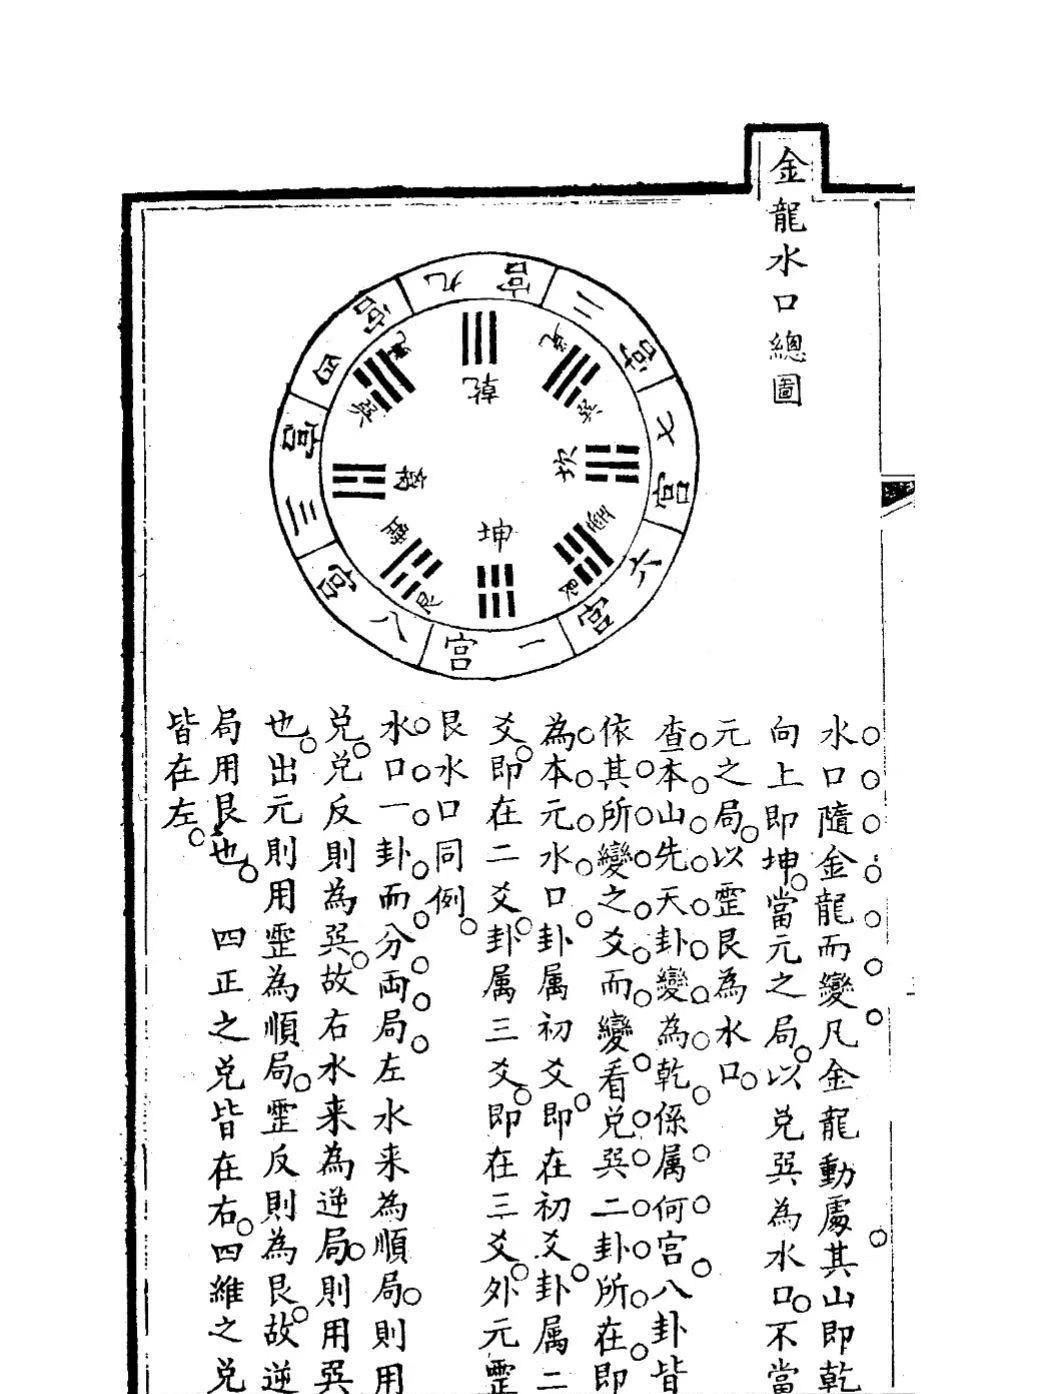 金龍水口總圖
九宮
二宮
七宮
六宮
一宮
八宮
三宮
四宮
乾
巽
坎
震
坤
艮
離
兌
水口隨金龍而變。凡金龍動處。其山即乾
向上即坤。當元之局。以兌巽為水口。不當
元之局。以震艮為水口。
查本山先天卦變為乾係属何宮。八卦皆
依其所變之爻而變看兌巽二卦所在即
為本元水口卦属初爻。即在初爻。卦属二
爻。即在二爻。卦属三爻。即在三爻。外元震
艮水口同例。
水口一卦而分両局。左水来為順局。則用
兌。兌反則為巽。故右水来為逆局。則用巽
也。出元則用震為順局。震反則為艮。故逆
局用艮也。 四正之兌皆在右。四維之兌
皆在左。